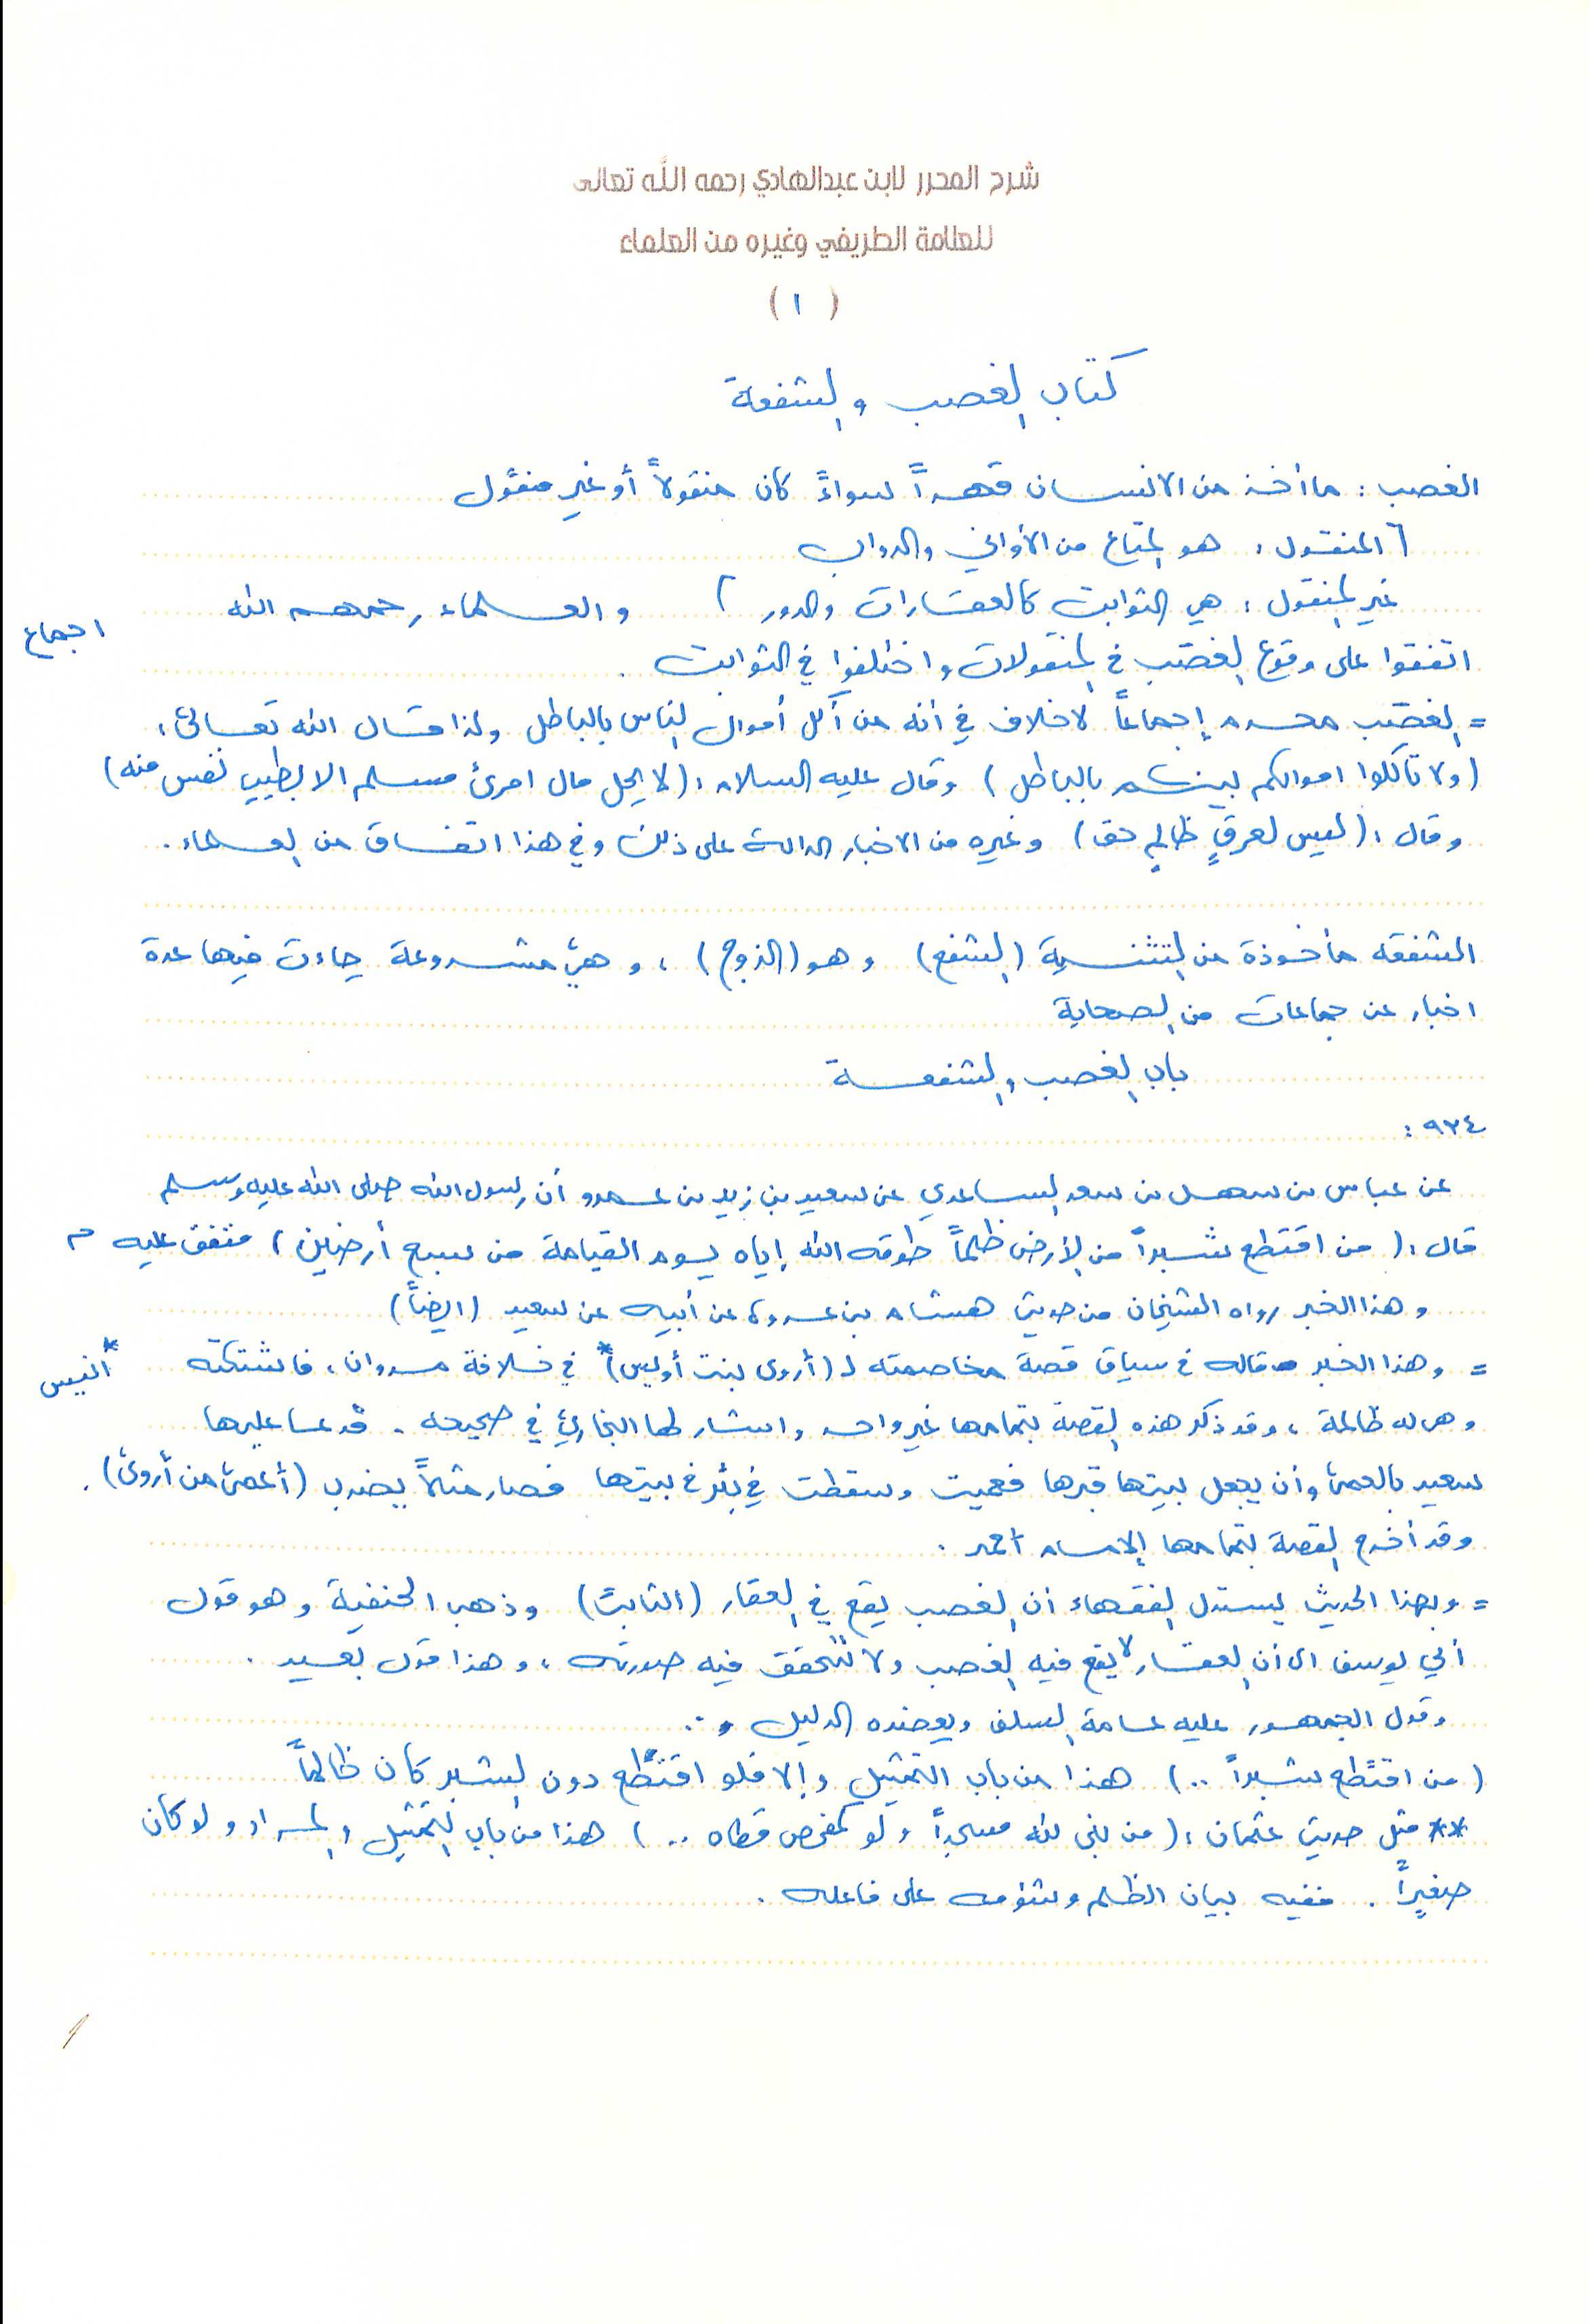 شرح المحرر لابن عبدالهادي رحمه الله تعالى
للعلامة الطريفي وغيره من العلماء
( ١ )
كتاب الغصب والشفعة
الغصب : ما أخذ من الانسان قهراً سواءً كان منقولاً أو غير منقول
[ المنقول : هو المتاع من الأواني والدواب
غير المنقول : هي الثوابت كالعقارات والدور ] والعلماء رحمهم الله
اجماع
اتفقوا على وقوع الغصب في المنقولات واختلفوا في الثوابت .
= الغصب محرم إجماعاً لا خلاف في أنه من أكل أموال الناس بالباطل ولذا قال الله تعالى :
(ولا تأكلوا اموالكم بينكم بالباطل) وقال عليه السلام : (لا يحل مال امرئ مسلم الا بطيب نفس منه)
وقال : (ليس لعرقٍ ظالمٍ حق) وغيره من الاخبار الدالة على ذلك وفي هذا اتفاق من العلماء .
الشفعة مأخوذة من التثنية (الشفع) وهو (الزوج) ، وهي مشروعة جاءت فيها عدة
اخبار عن جماعات من الصحابة
باب الغصب والشفعة
٩٣٤ :
عن عباس بن سهل بن سعد الساعدي عن سعيد بن زيد بن عمرو أن رسول الله صلى الله عليه وسلم
قال : ( من اقتطع شبراً من الأرض ظلماً طوقه الله إياه يوم القيامة من سبع أرضين ) متفق عليه م
وهذا الخبر رواه الشيخان من حديث هشام بن عروة عن أبيه عن سعيد (ايضاً)
= وهذا الخبر قاله في سياق قصة مخاصمته لـ (أروى بنت أويس)* في خلافة مروان ، فاشتكته
* أنيس
وهي له ظالمة ، وقد ذكر هذه القصة بتمامها غير واحد واشار لها البخاري في صحيحه . فدعا عليها
سعيد بالعمى وأن يجعل بيتها قبرها فعميت وسقطت في بئر في بيتها فصار مثلاً يضرب (أعمى من أروى) .
وقد أخرج القصة بتمامها الإمام أحمد .
= وبهذا الحديث يستدل الفقهاء أن الغصب يقع في العقار (الثابت) وذهب الحنفية وهو قول
أبي يوسف الى أن العقار لا يقع فيه الغصب ولا تتحقق فيه صورته ، وهذا قول بعيد .
وقول الجمهور عليه عامة السلف ويعضده الدليل ..
( من اقتطع شبراً .. ) هذا من باب التمثيل وإلا فلو اقتطع دون الشبر كان ظالماً
** مثل حديث عثمان : ( من بنى لله مسجداً ولو كمفحص قطاه .. ) هذا من باب التمثيل والمراد ولو كان
صغيراً . ففيه بيان الظلم وشؤمه على فاعله .